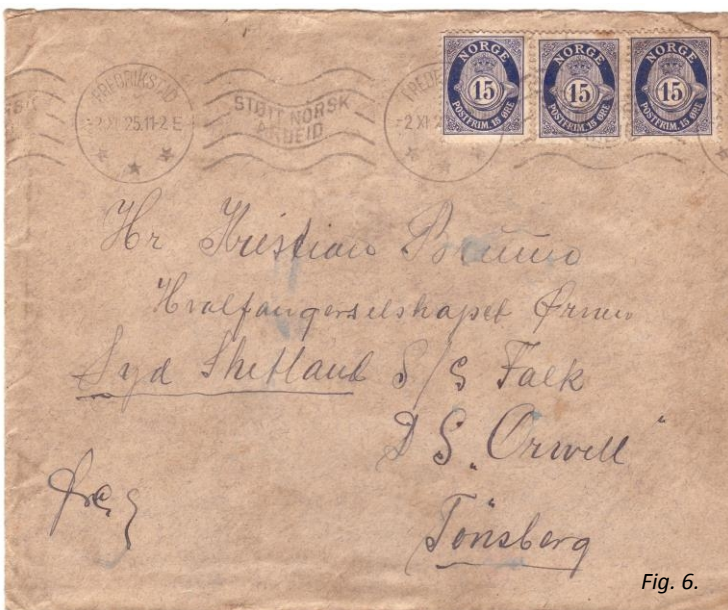 FREDRIKSTAD
-2 XI 25.11-2 E
STØTT NORSK
ARBEID
FREDE
-2 XI 2
NORGE
15
POSTFRIM. 15 ØRE
NORGE
15
POSTFRIM. 15 ØRE
NORGE
15
POSTFRIM. 15 ØRE
Hr Kristian Bruuno
Hvalfangerselskapet Ørnen
Syd Shetland S/S Falk
D S. "Orwell"
Tönsberg
Fig. 6.